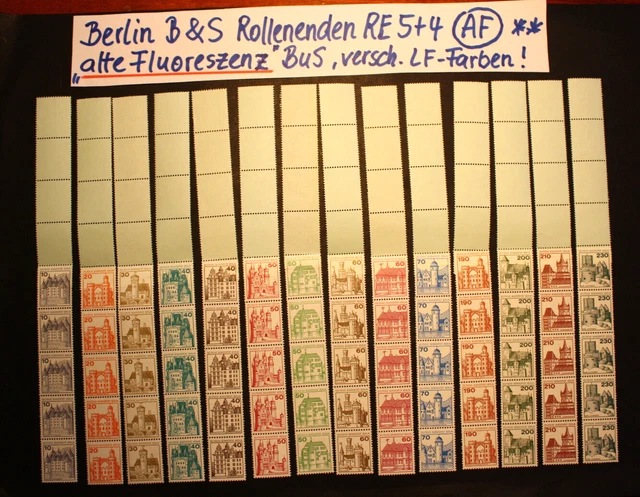 Berlin B&S Rollenenden RE 5+4 (AF) **
"alte Fluoreszenz" BuS, versch. LF-Farben!
10 20 30 40 40 50 60 60 60 70 190 200 210 230
10 20 30 40 40 50 60 60 60 70 190 200 210 230
10 20 30 40 40 50 60 60 60 70 190 200 210 230
10 20 30 40 40 50 60 60 60 70 190 200 210 230
10 20 30 40 40 50 60 60 60 70 190 200 210 230